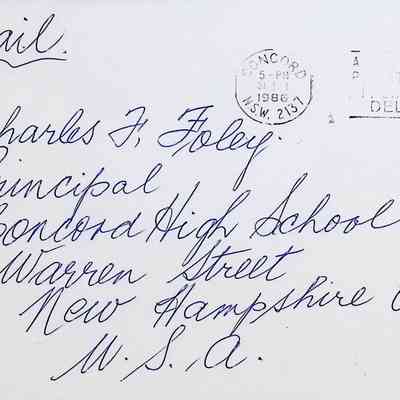 ail.
CONCORD
5-PM
1986
N.S.W. 2137
A
P
DEL
harles F. Foley.
rincipal
oncord High School
Warren Street
New Hampshire
U.S.A.